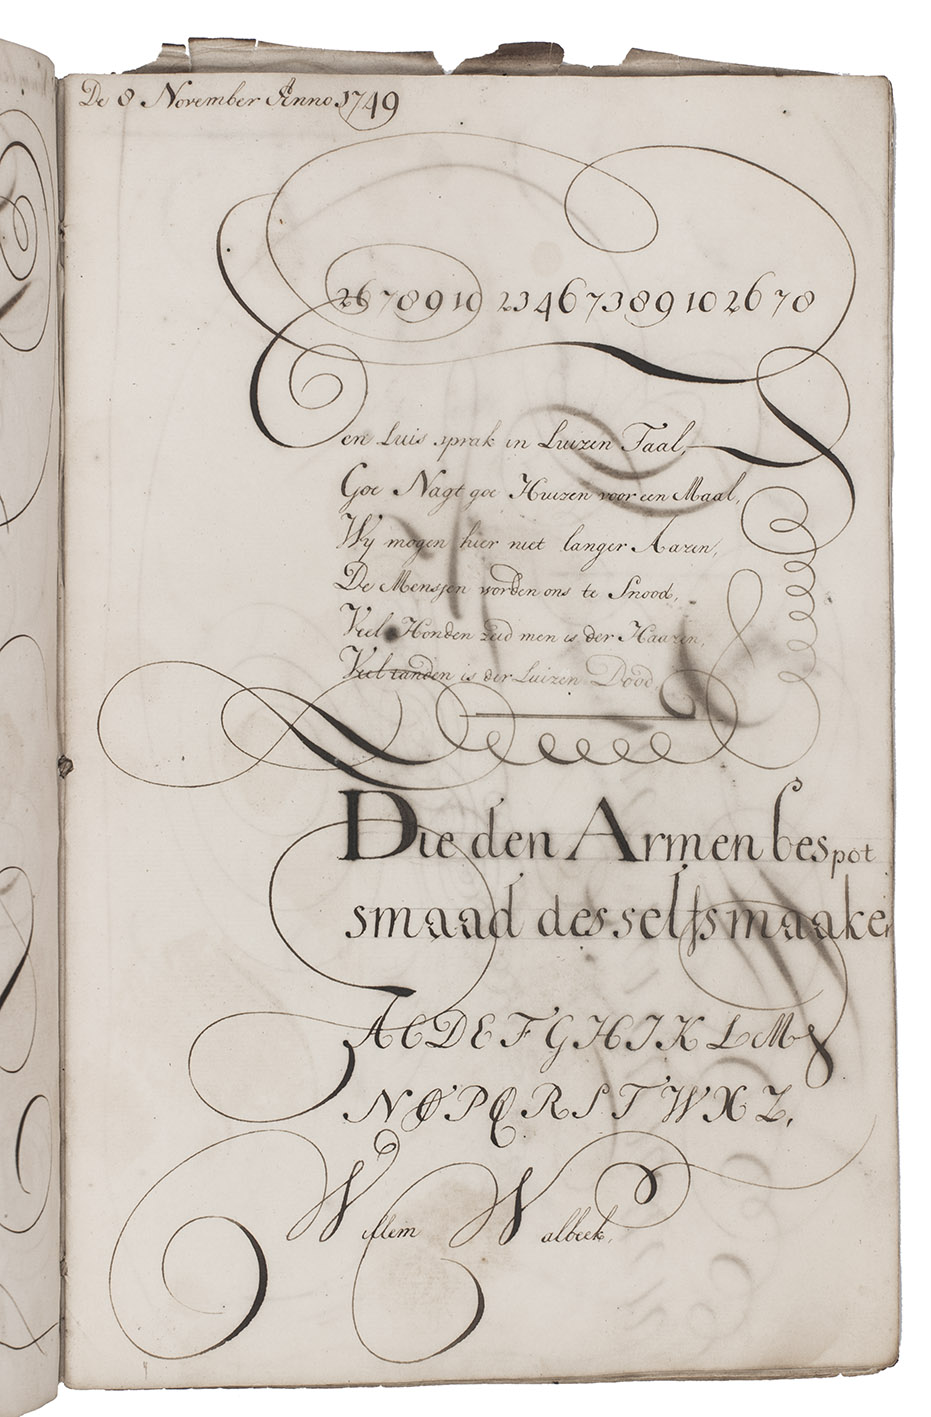 De 8 November Anno 1749
26 78910 2346738910 26 78
Een Luis sprak in Luizen Taal,
Goe Nagt goe Huizen voor een Maal,
Wy mogen hier niet langer Aazen,
De Mensjen worden ons te Snood,
Veel Honden zeid men is der Haazen,
Veel tanden is der Luizen Dood,
Die den Armen bespot
smaad desselfs maaker
A C D E F G H I K L M
N O P Q R S T W X Z,
Willem Walbeek,